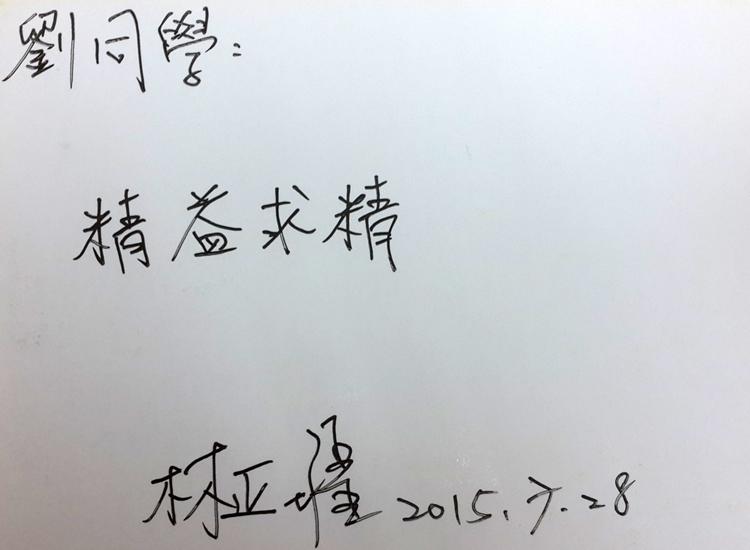 劉同學:
精益求精
林正 2015.7.28